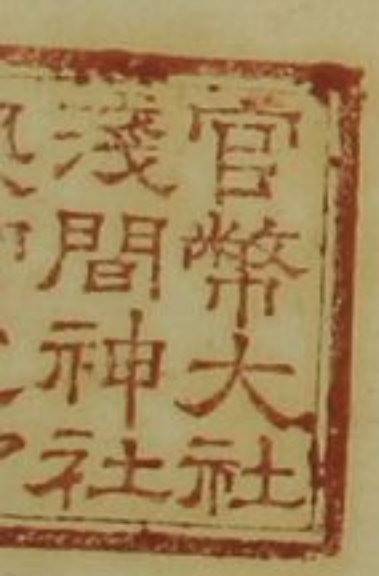 官幣大社
淺間神社